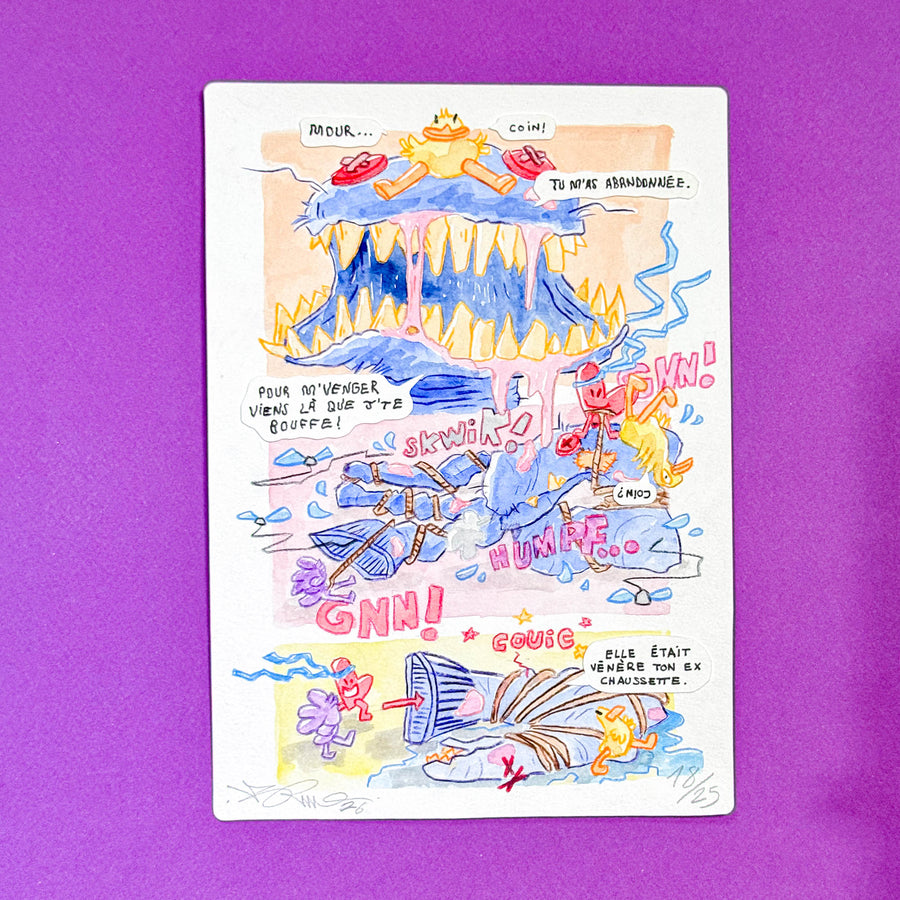 MOUR...
COIN!
TU M'AS ABANDONNÉE.
GNN!
POUR M'VENGER
VIENS LÀ QUE J'TE
BOUFFE!
SKWIK!
COIN?
HUMPF...
GNN!
COUIC
ELLE ÉTAIT
VÉNÈRE TON EX
CHAUSSETTE.
18/25